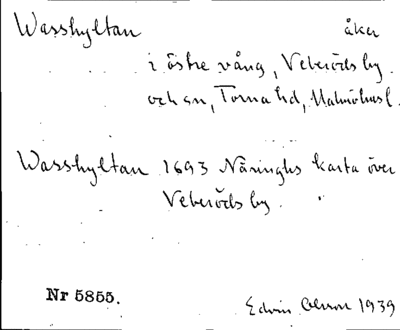 Wasshyltan åker
i östre vång, Veberöds by
och sn, Torna hd, Malmöhus l.
Wasshyltan 1693 Näringhs karta över
Veberöds by.
Nr 5855.
Edvin Olsson 1939